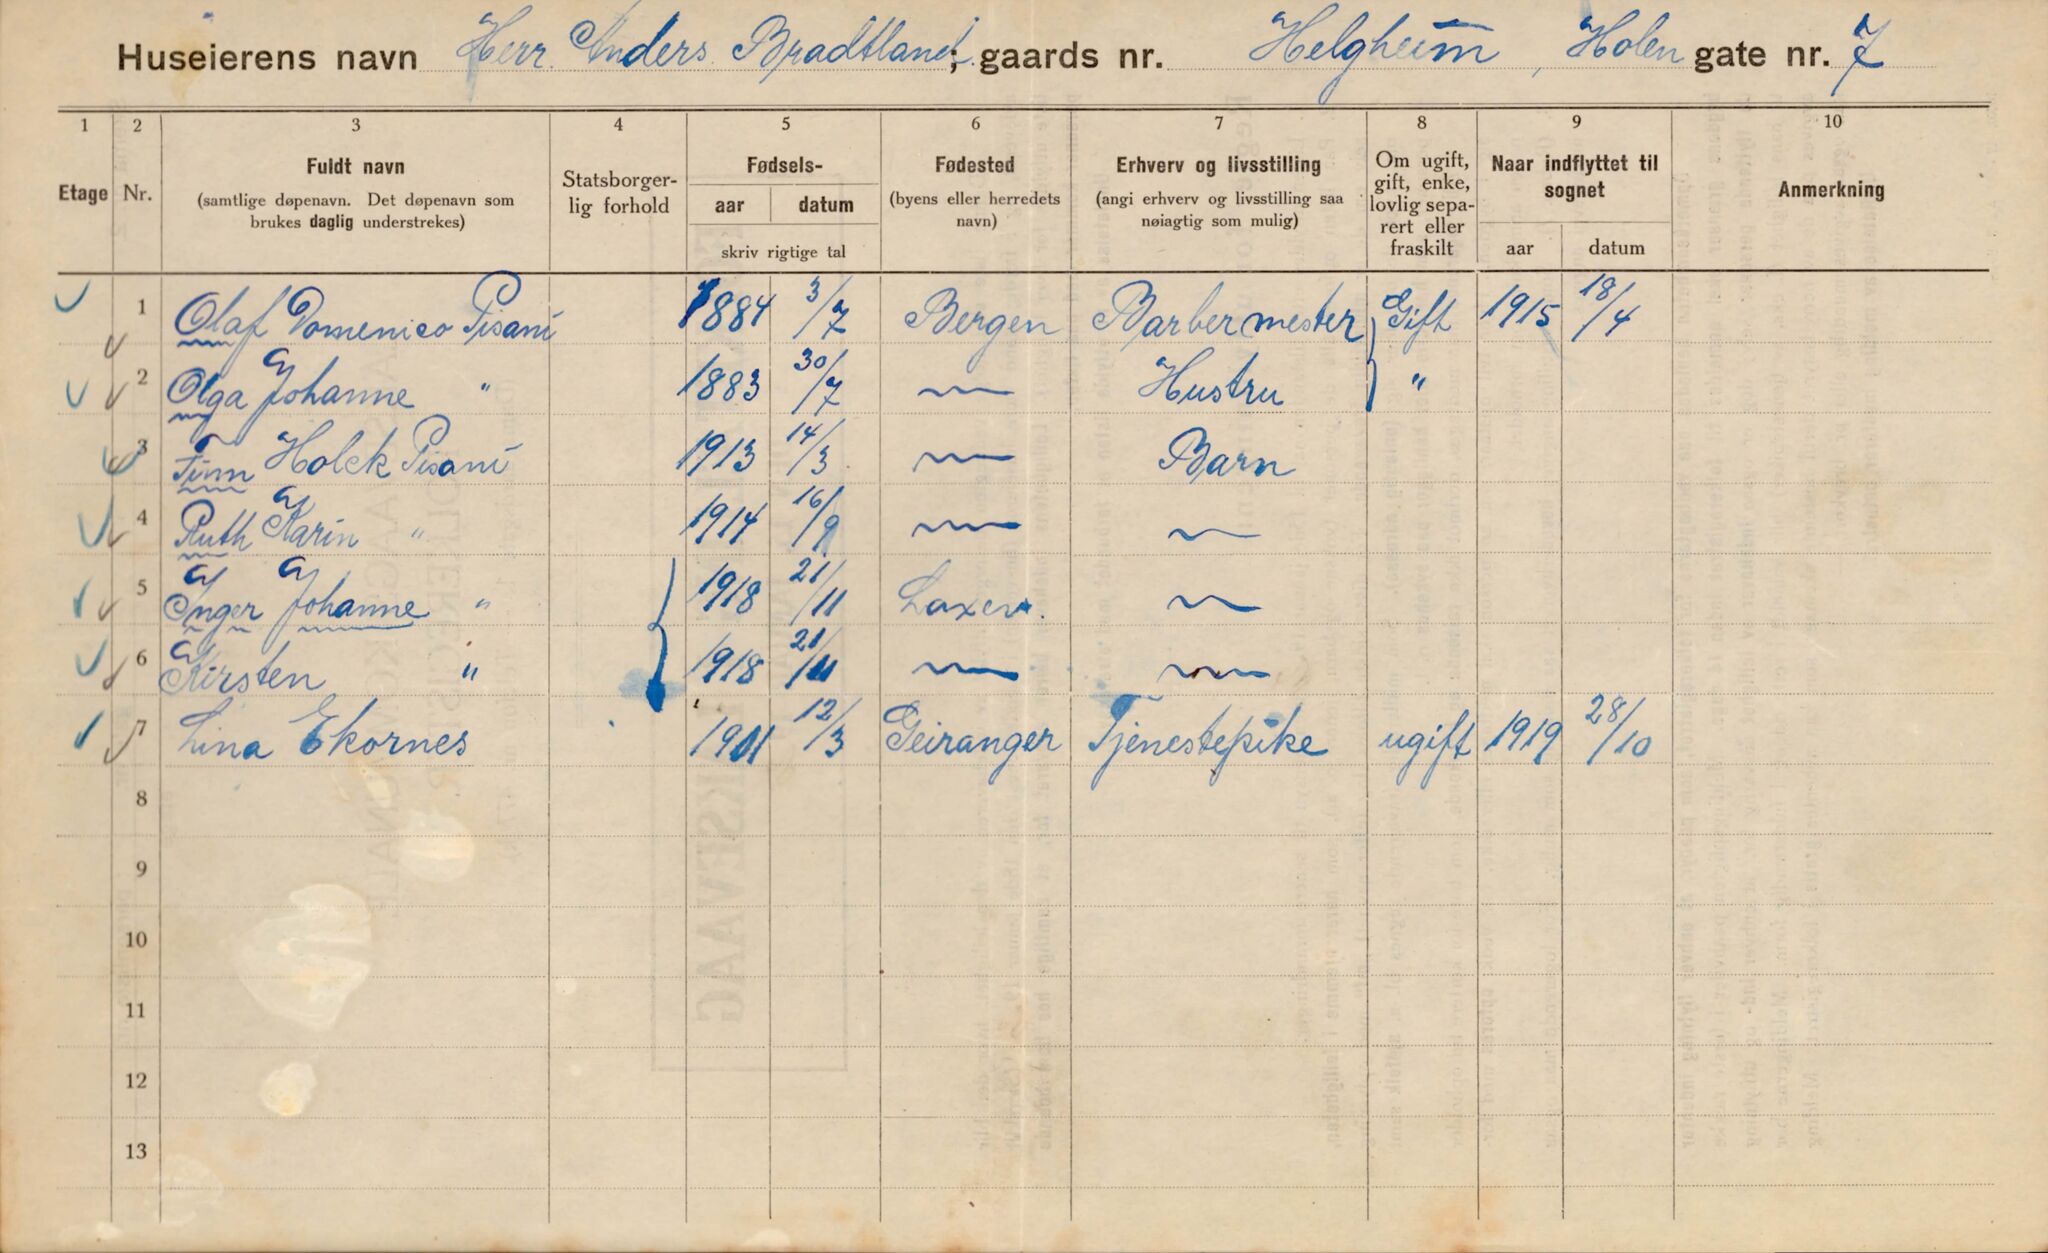 Huseierens navn Herr. Anders Bradtland; gaards nr. Helgheim, Holen gate nr. 7
1 2 3 4 5 6 7 8 9 10
Etage Nr. Fuldt navn (samtlige døpenavn. Det døpenavn som brukes daglig understrekes) Statsborgerlig forhold Fødsels- aar datum skriv rigtige tal Fødested (byens eller herredets navn) Erhverv og livsstilling (angi erhverv og livsstilling saa nøiagtig som mulig) Om ugift, gift, enke, lovlig separert eller fraskilt Naar indflyttet til sognet aar datum Anmerkning
1 Olaf Domenico Pisani 1884 3/7 Bergen Barbermester Gift 1915 18/4
2 Olga Johanne " 1883 30/7 — Hustru "
3 Finn Holck Pisani 1913 14/3 — Barn
4 Ruth Karin " 1914 16/9 — —
5 Inger Johanne " 1918 21/11 Laxev. —
6 Kirsten " 1918 21/11 — —
7 Lina Ekornes 1901 12/3 Geiranger Tjenestepike ugift 1919 28/10
8
9
10
11
12
13